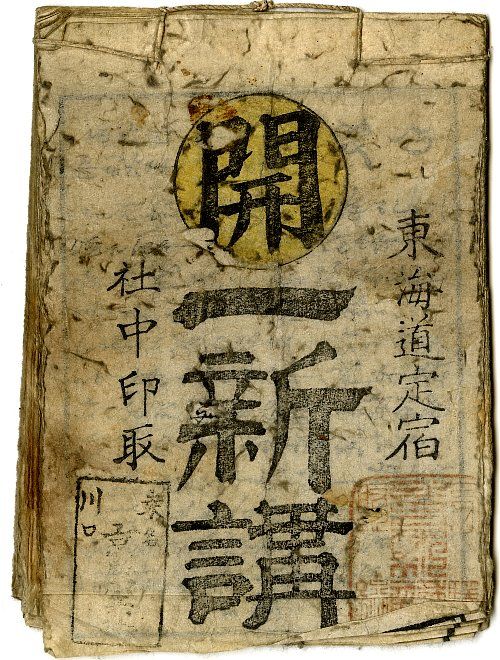 東海道定宿
開
一新講
社中印取
川口